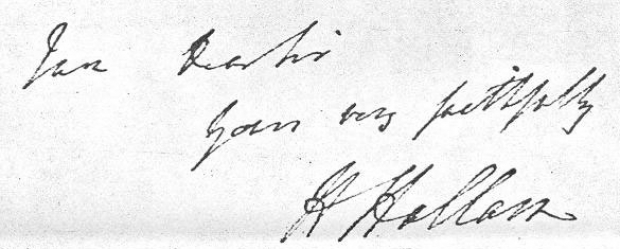 I am Dear Sir
Yours very faithfully
H Hallam